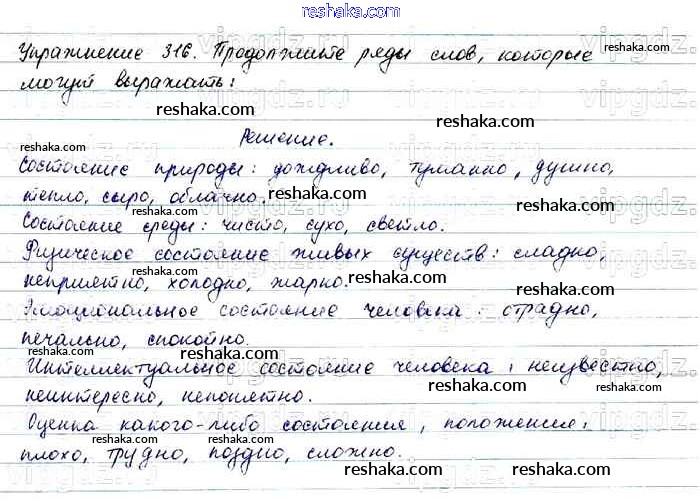 reshaka.com
Упражнение 316. Продолжите ряды слов, которые
могут выражать:
reshaka.com
reshaka.com
Решение.
Состояние природы: дождливо, туманно, душно,
тепло, сыро, облачно.
reshaka.com
reshaka.com
Состояние среды: чисто, сухо, светло.
reshaka.com
Физическое состояние живых существ: сладко,
неприятно, холодно, жарко.
reshaka.com
reshaka.com
Эмоциональное состояние человека: отрадно,
печально, спокойно.
reshaka.com
Интеллектуальное состояние человека: неизвестно,
неинтересно, непонятно.
reshaka.com
Оценка какого-либо состояния, положения:
reshaka.com
плохо, трудно, поздно, сложно.
reshaka.com
vipgdz.ru